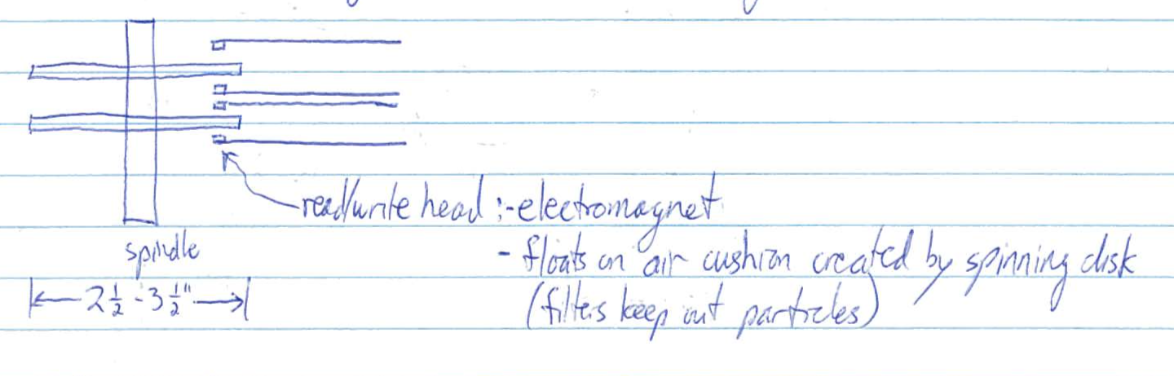 read/write head :-electromagnet
spindle
- floats on air cushion created by spinning disk
2 1/2 - 3 1/2"
(filters keep out particles)